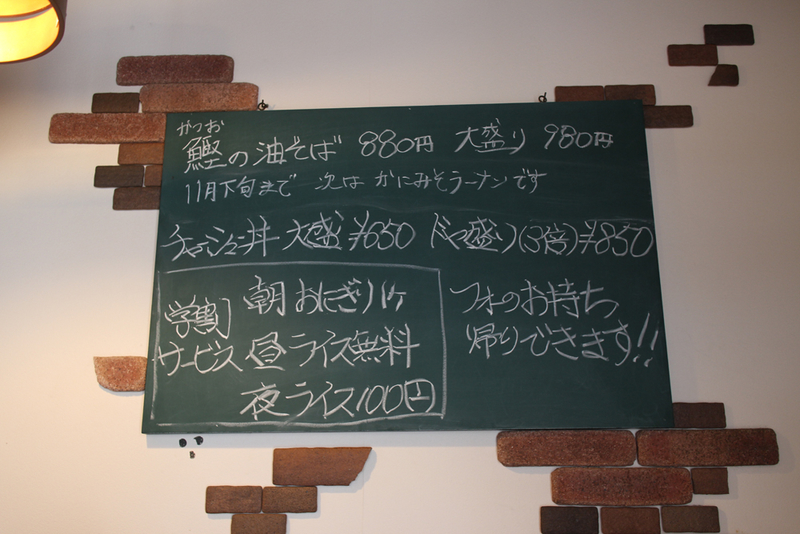 かつお
鰹の油そば 880円 大盛り 980円
11月下旬まで 次は かにみそラーメンです
チャーシュー丼 大盛 ¥650 ドカ盛り(3倍)¥850
学割サービス
朝 おにぎり1ヶ
昼 ライス無料
夜 ライス100円
フォーのお持ち
帰りできます!!